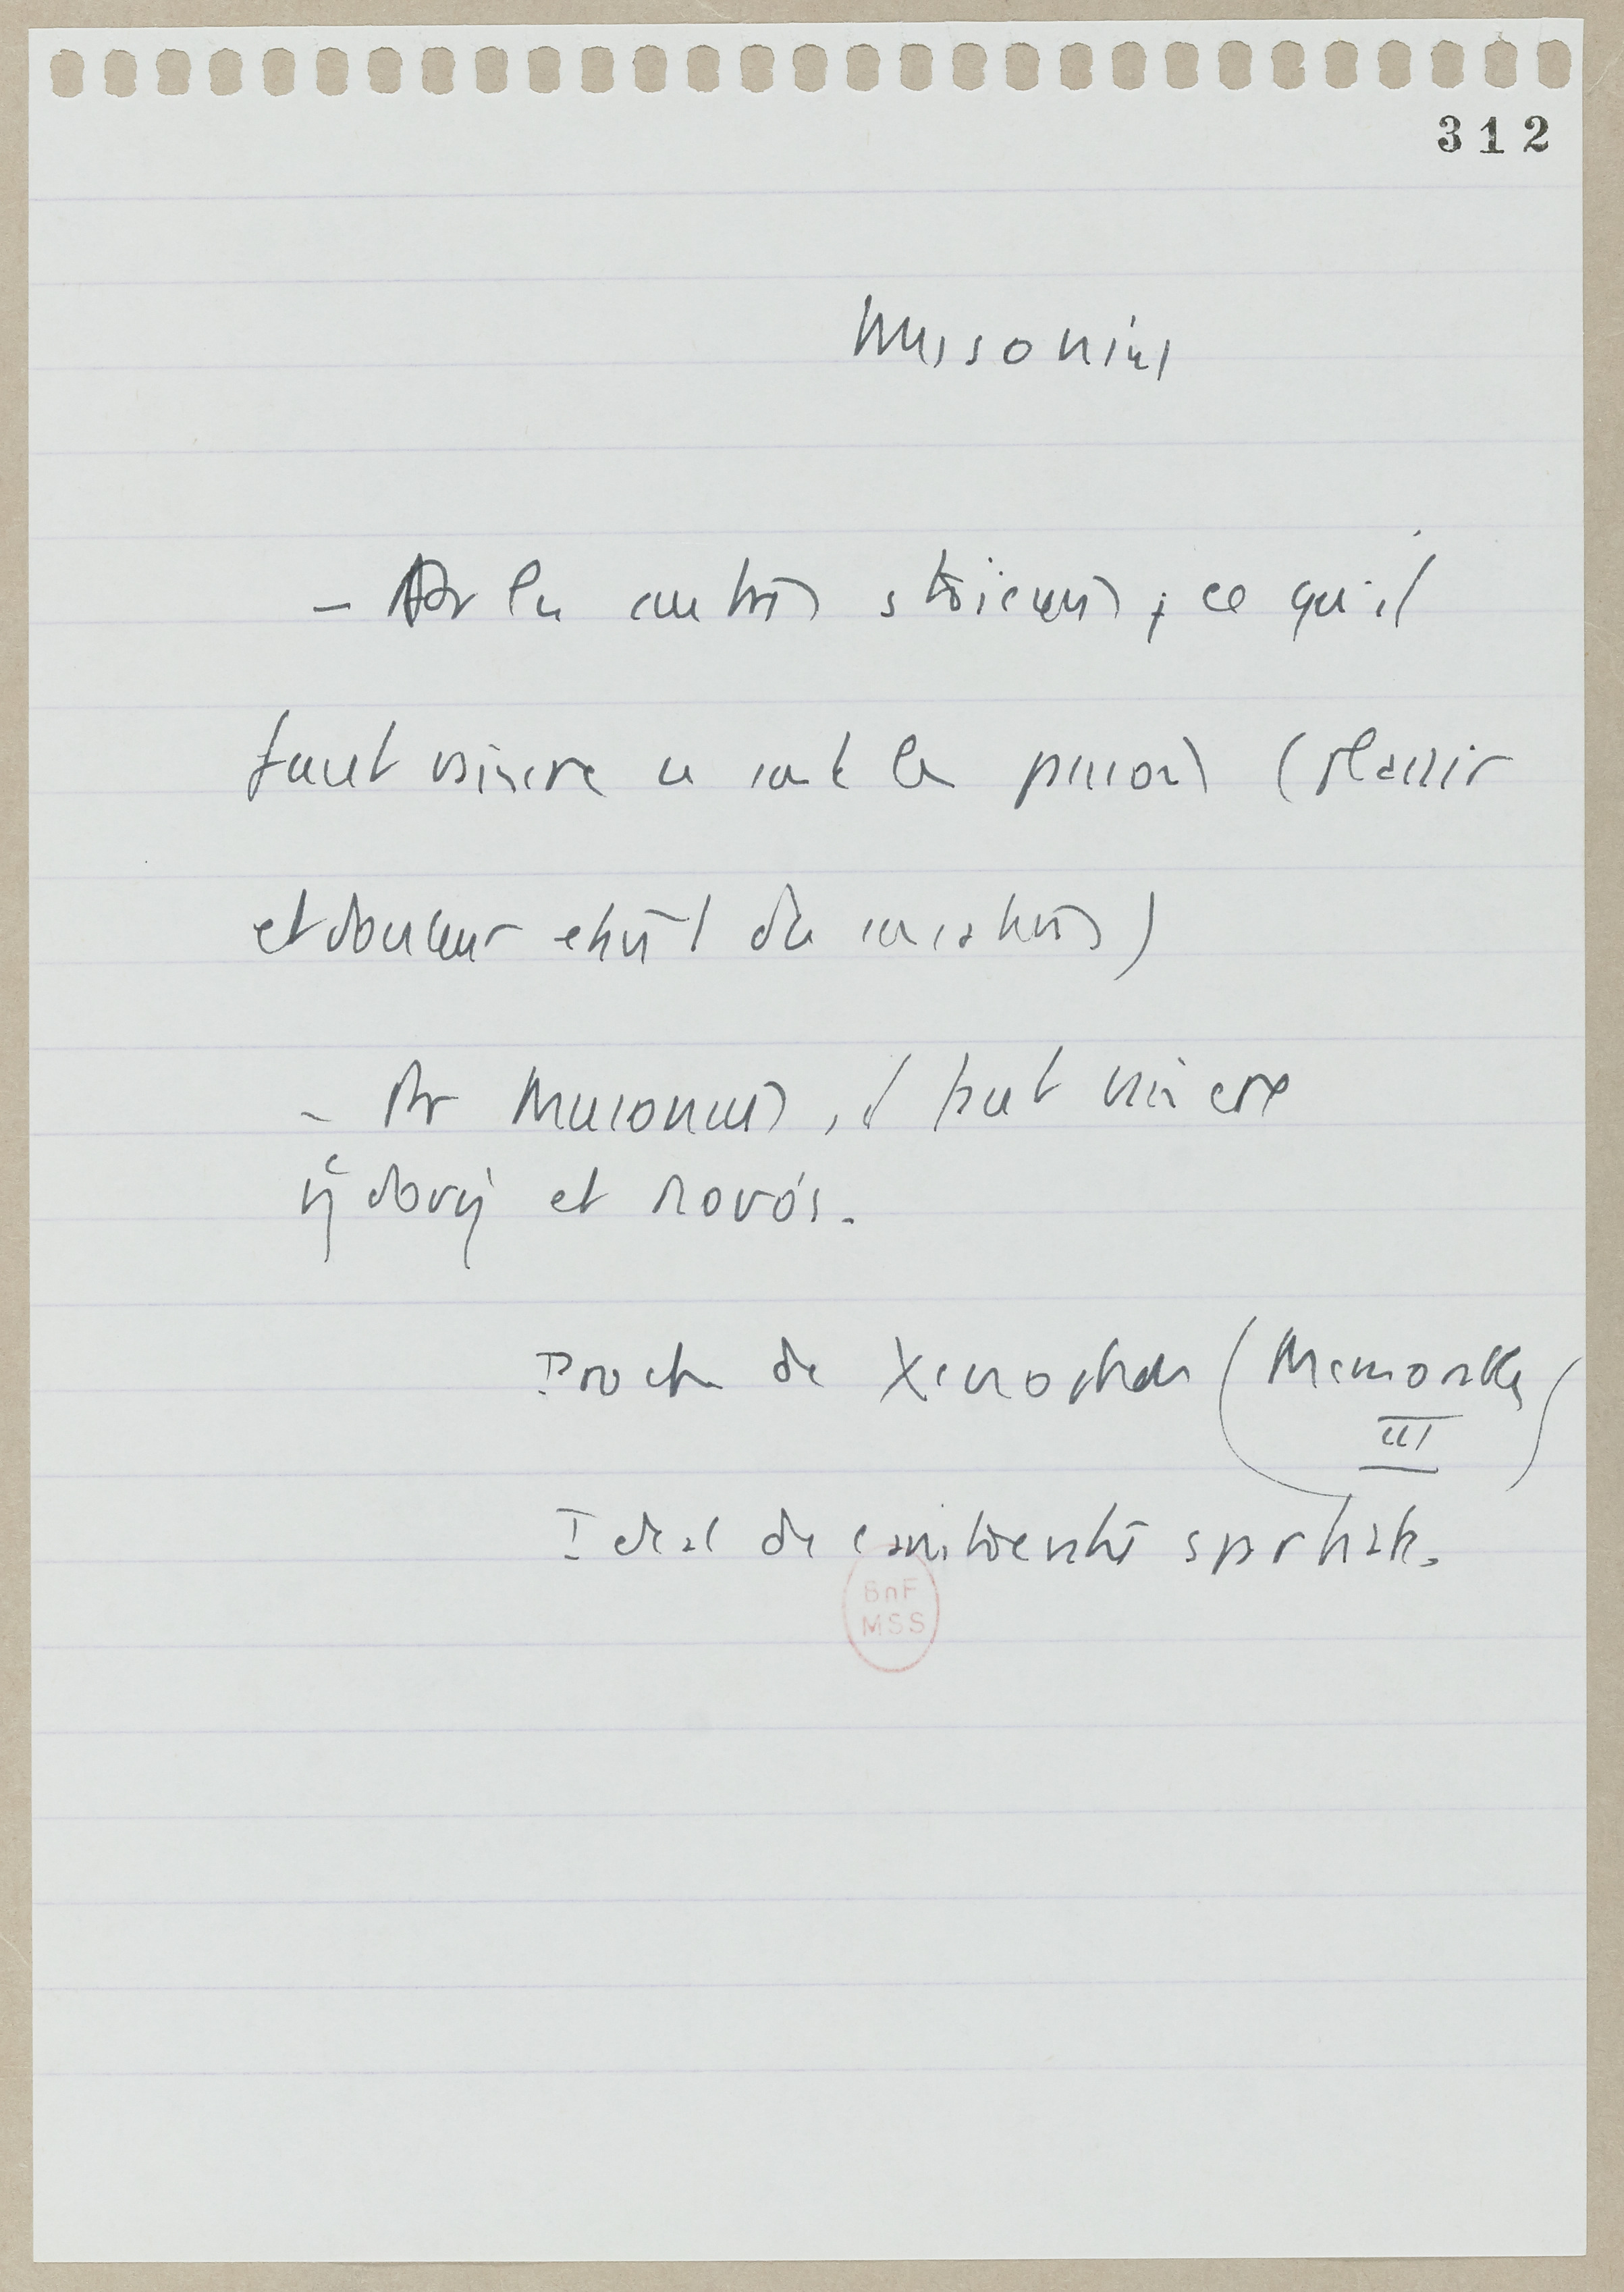 312
Musonius
- Pr les autres stoiciens, ce qu'il
faut vaincre ce sont les passions (plaisir
et douleur étant des)
- Pr Musonius, il faut vaincre
ἡδονή et πονός.
Proche de Xénophon (Mémorables
III)
Idéal de spartiate.
BnF
MSS